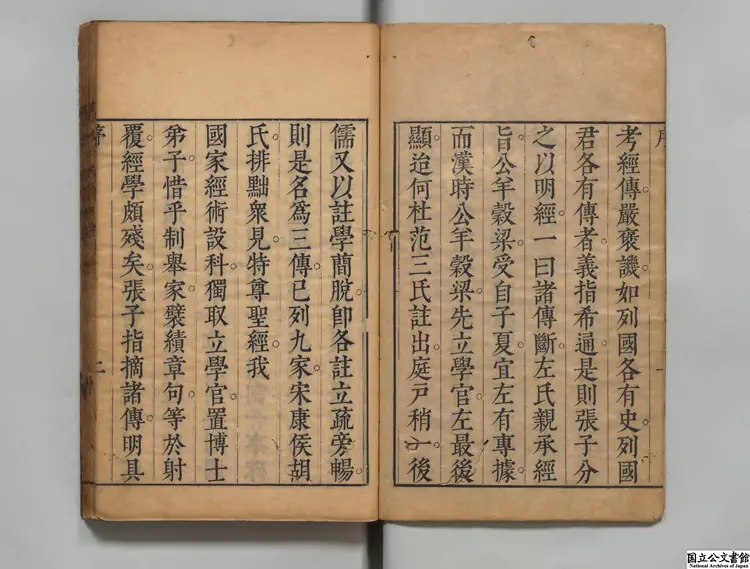 序
考經傳嚴褒譏。如列國各有史。列國
君各有傳者。義指希通。是則張子分
之以明經。一曰諸傳斷。左氏親承經
旨。公羊穀梁。受自子夏。宜左有專據。
而漢時公羊穀梁。先立學官。左最後
顯。迨何杜范三氏註出。庭戸稍一。後
一
儒又以註學蕳脫。卽各註立疏旁暢。
則是名爲三傳。已列九家。宋康侯胡
氏。排黜衆見。特尊聖經。我
國家經術設科。獨取立學官。置博士
弟子。惜乎制舉家。襞績章句。等於射
覆。經學頗殘矣。張子指摘諸傳。明具
序
二
国立公文書館
National Archives of Japan